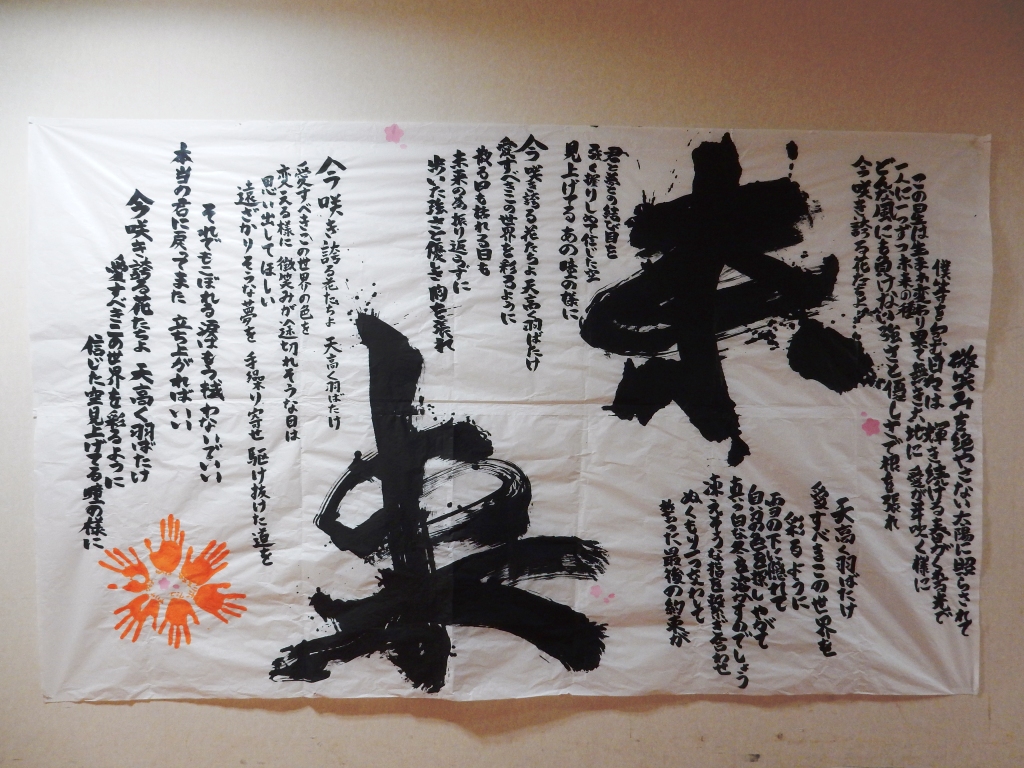 微笑み声絶やさない太陽に照らされて
輝き続ける
この星は生まれ変わり果て無き大地に 愛が芽吹く様に
一人に一つずつ未来の種
どんな風にも負けない強さと優しさで根を張れ
今 咲き誇る花たちよ
天高く羽ばたけ
愛すべきこの世界を
彩るように
雪の下に隠れて
やがて
真っ白な冬を染めるのでしょう
凍えそうな指を繋ぎ合わせ
ぬくもり一つ交わして
誓った最後の約束が
未
君と夢の結び目を
信じた空
見上げてる あの瞳の様に
今 咲き誇る花たちよ 天高く羽ばたけ
愛すべきこの世界を彩るように
散る日も枯れる日も
未来の為 振り返らずに
歩いた強さと優しさ
来
今 咲き誇る花たちよ 天高く羽ばたけ
愛すべきこの世界の色を
変える様に 微笑みが途切れそうな日は
思い出してほしい
遠ざかりそうな夢を 手繰り寄せ 駆け抜けた道を
それでもこぼれる涙を もう拭わないでいい
本当の君に戻ってまた 立ち上がればいい
今 咲き誇る花たちよ 天高く羽ばたけ
愛すべきこの世界を彩るように
信じた空見上げてる瞳の様に